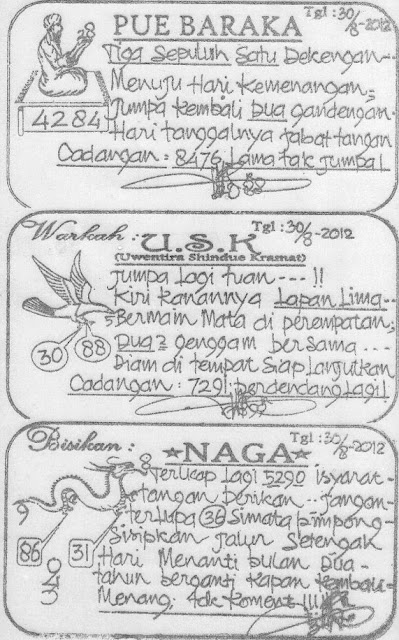 Tgl : 30/8-2012
PUE BARAKA
28
4284
Tiga Sepuluh Satu Dekengan--
Menuju Hari Kemenangan;
Jumpa Kembali Dua gandengan
Hari tanggalnya Jabat tangan
Cadangan : 8476 Lama tak Jumpa!
Warkah :
Tgl : 30/8-2012
U.S.K
(Uwentira Shindue Kramat)
Jumpa Lagi tuan --- !!
Kiri Kanannya Lapan Lima--
Bermain Mata di perempatan;
Dua2 genggam bersama ...
Diam di tempat Siap Lanjutkan
Cadangan : 7291 berdendang Lagi!
5
30
88
Bisikan :
Tgl : 30/8-2012
★NAGA★
8
Terucap Lagi 5290 isyarat-
tangan berikan .. jangan-
terlupa 36 Simata
Sisipkan Jalur Setengah
Hari Menanti bulan Dua-
tahun berganti Kapan Kembali-
Menang; tdk Koment !!!
9
86
31
043